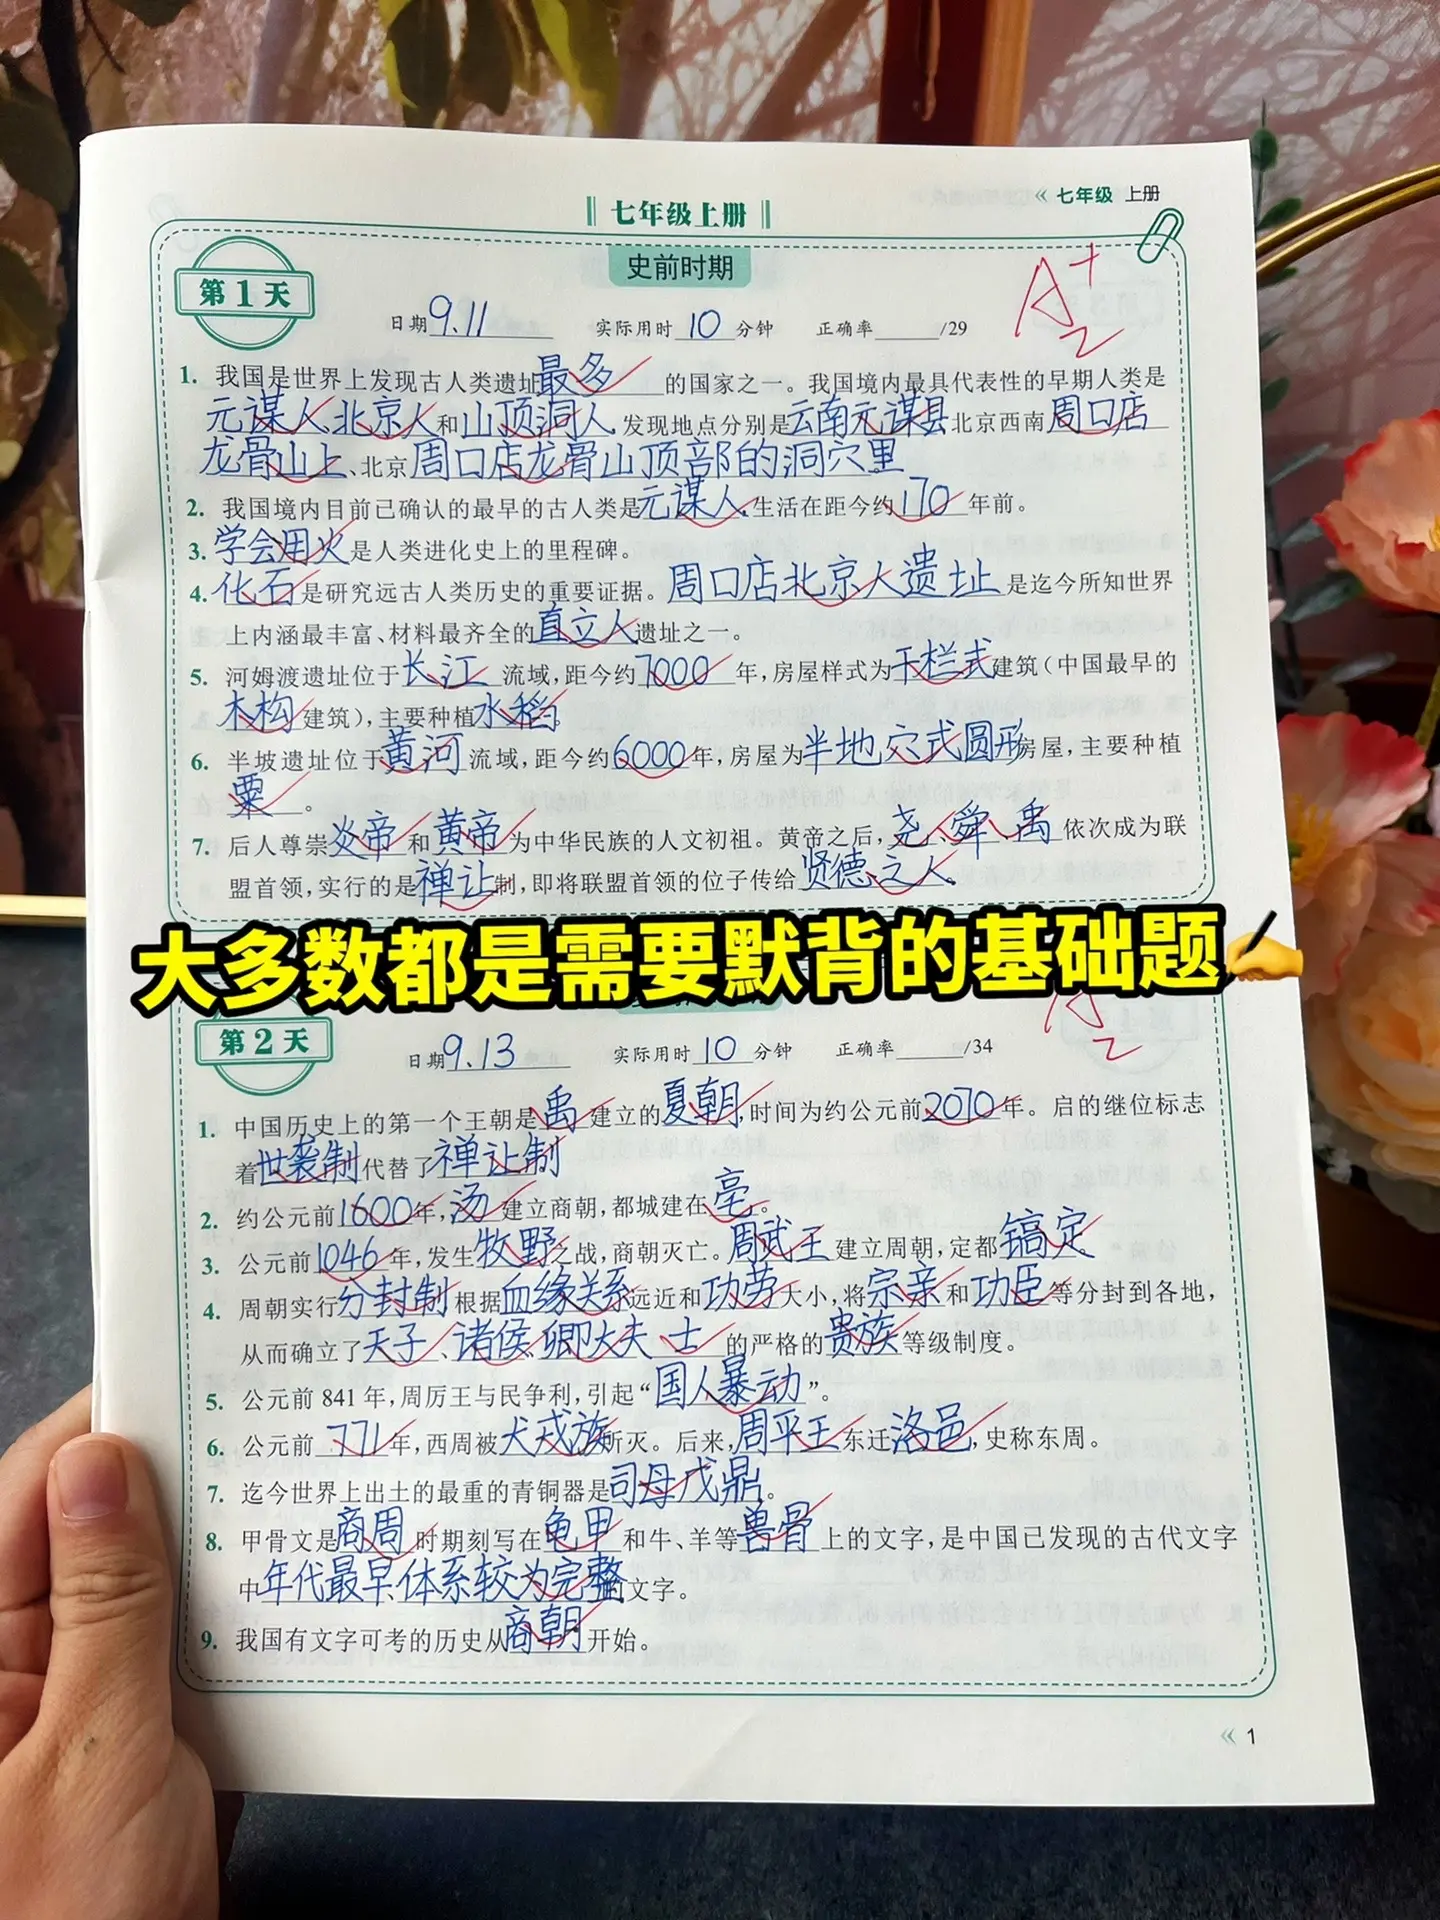 《 七年级 上册
七年级上册
史前时期
第1天
A+
2
日期 9.11 实际用时 10 分钟 正确率 /29
1. 我国是世界上发现古人类遗址最多的国家之一。我国境内最具代表性的早期人类是
元谋人、北京人和山顶洞人,发现地点分别是云南元谋县、北京西南周口店
龙骨山上、北京周口店龙骨山顶部的洞穴里
2. 我国境内目前已确认的最早的古人类是元谋人,生活在距今约170年前。
3. 学会用火是人类进化史上的里程碑。
4. 化石是研究远古人类历史的重要证据。周口店北京人遗址是迄今所知世界
上内涵最丰富、材料最齐全的直立人遗址之一。
5. 河姆渡遗址位于长江流域,距今约7000年,房屋样式为干栏式建筑(中国最早的
木构建筑),主要种植水稻。
6. 半坡遗址位于黄河流域,距今约6000年,房屋为半地穴式圆形房屋,主要种植
粟。
7. 后人尊崇炎帝和黄帝为中华民族的人文初祖。黄帝之后,尧、舜、禹依次成为联
盟首领,实行的是禅让制,即将联盟首领的位子传给贤德之人。
大多数都是需要默背的基础题✍
第2天
2
日期 9.13 实际用时 10 分钟 正确率 /34
1. 中国历史上的第一个王朝是禹建立的夏朝,时间为约公元前2070年。启的继位标志
着世袭制代替了禅让制
2. 约公元前1600年,汤建立商朝,都城建在亳。
3. 公元前1046年,发生牧野之战,商朝灭亡。周武王建立周朝,定都镐定
4. 周朝实行分封制根据血缘关系远近和功劳大小,将宗亲和功臣等分封到各地,
从而确立了天子、诸侯、卿大夫、士的严格的贵族等级制度。
5. 公元前841年,周厉王与民争利,引起“国人暴动”。
6. 公元前771年,西周被犬戎族所灭。后来,周平王东迁洛邑,史称东周。
7. 迄今世界上出土的最重的青铜器是司母戊鼎。
8. 甲骨文是商周时期刻写在龟甲和牛、羊等兽骨上的文字,是中国已发现的古代文字
中年代最早、体系较为完整的文字。
9. 我国有文字可考的历史从商朝开始。
《 1